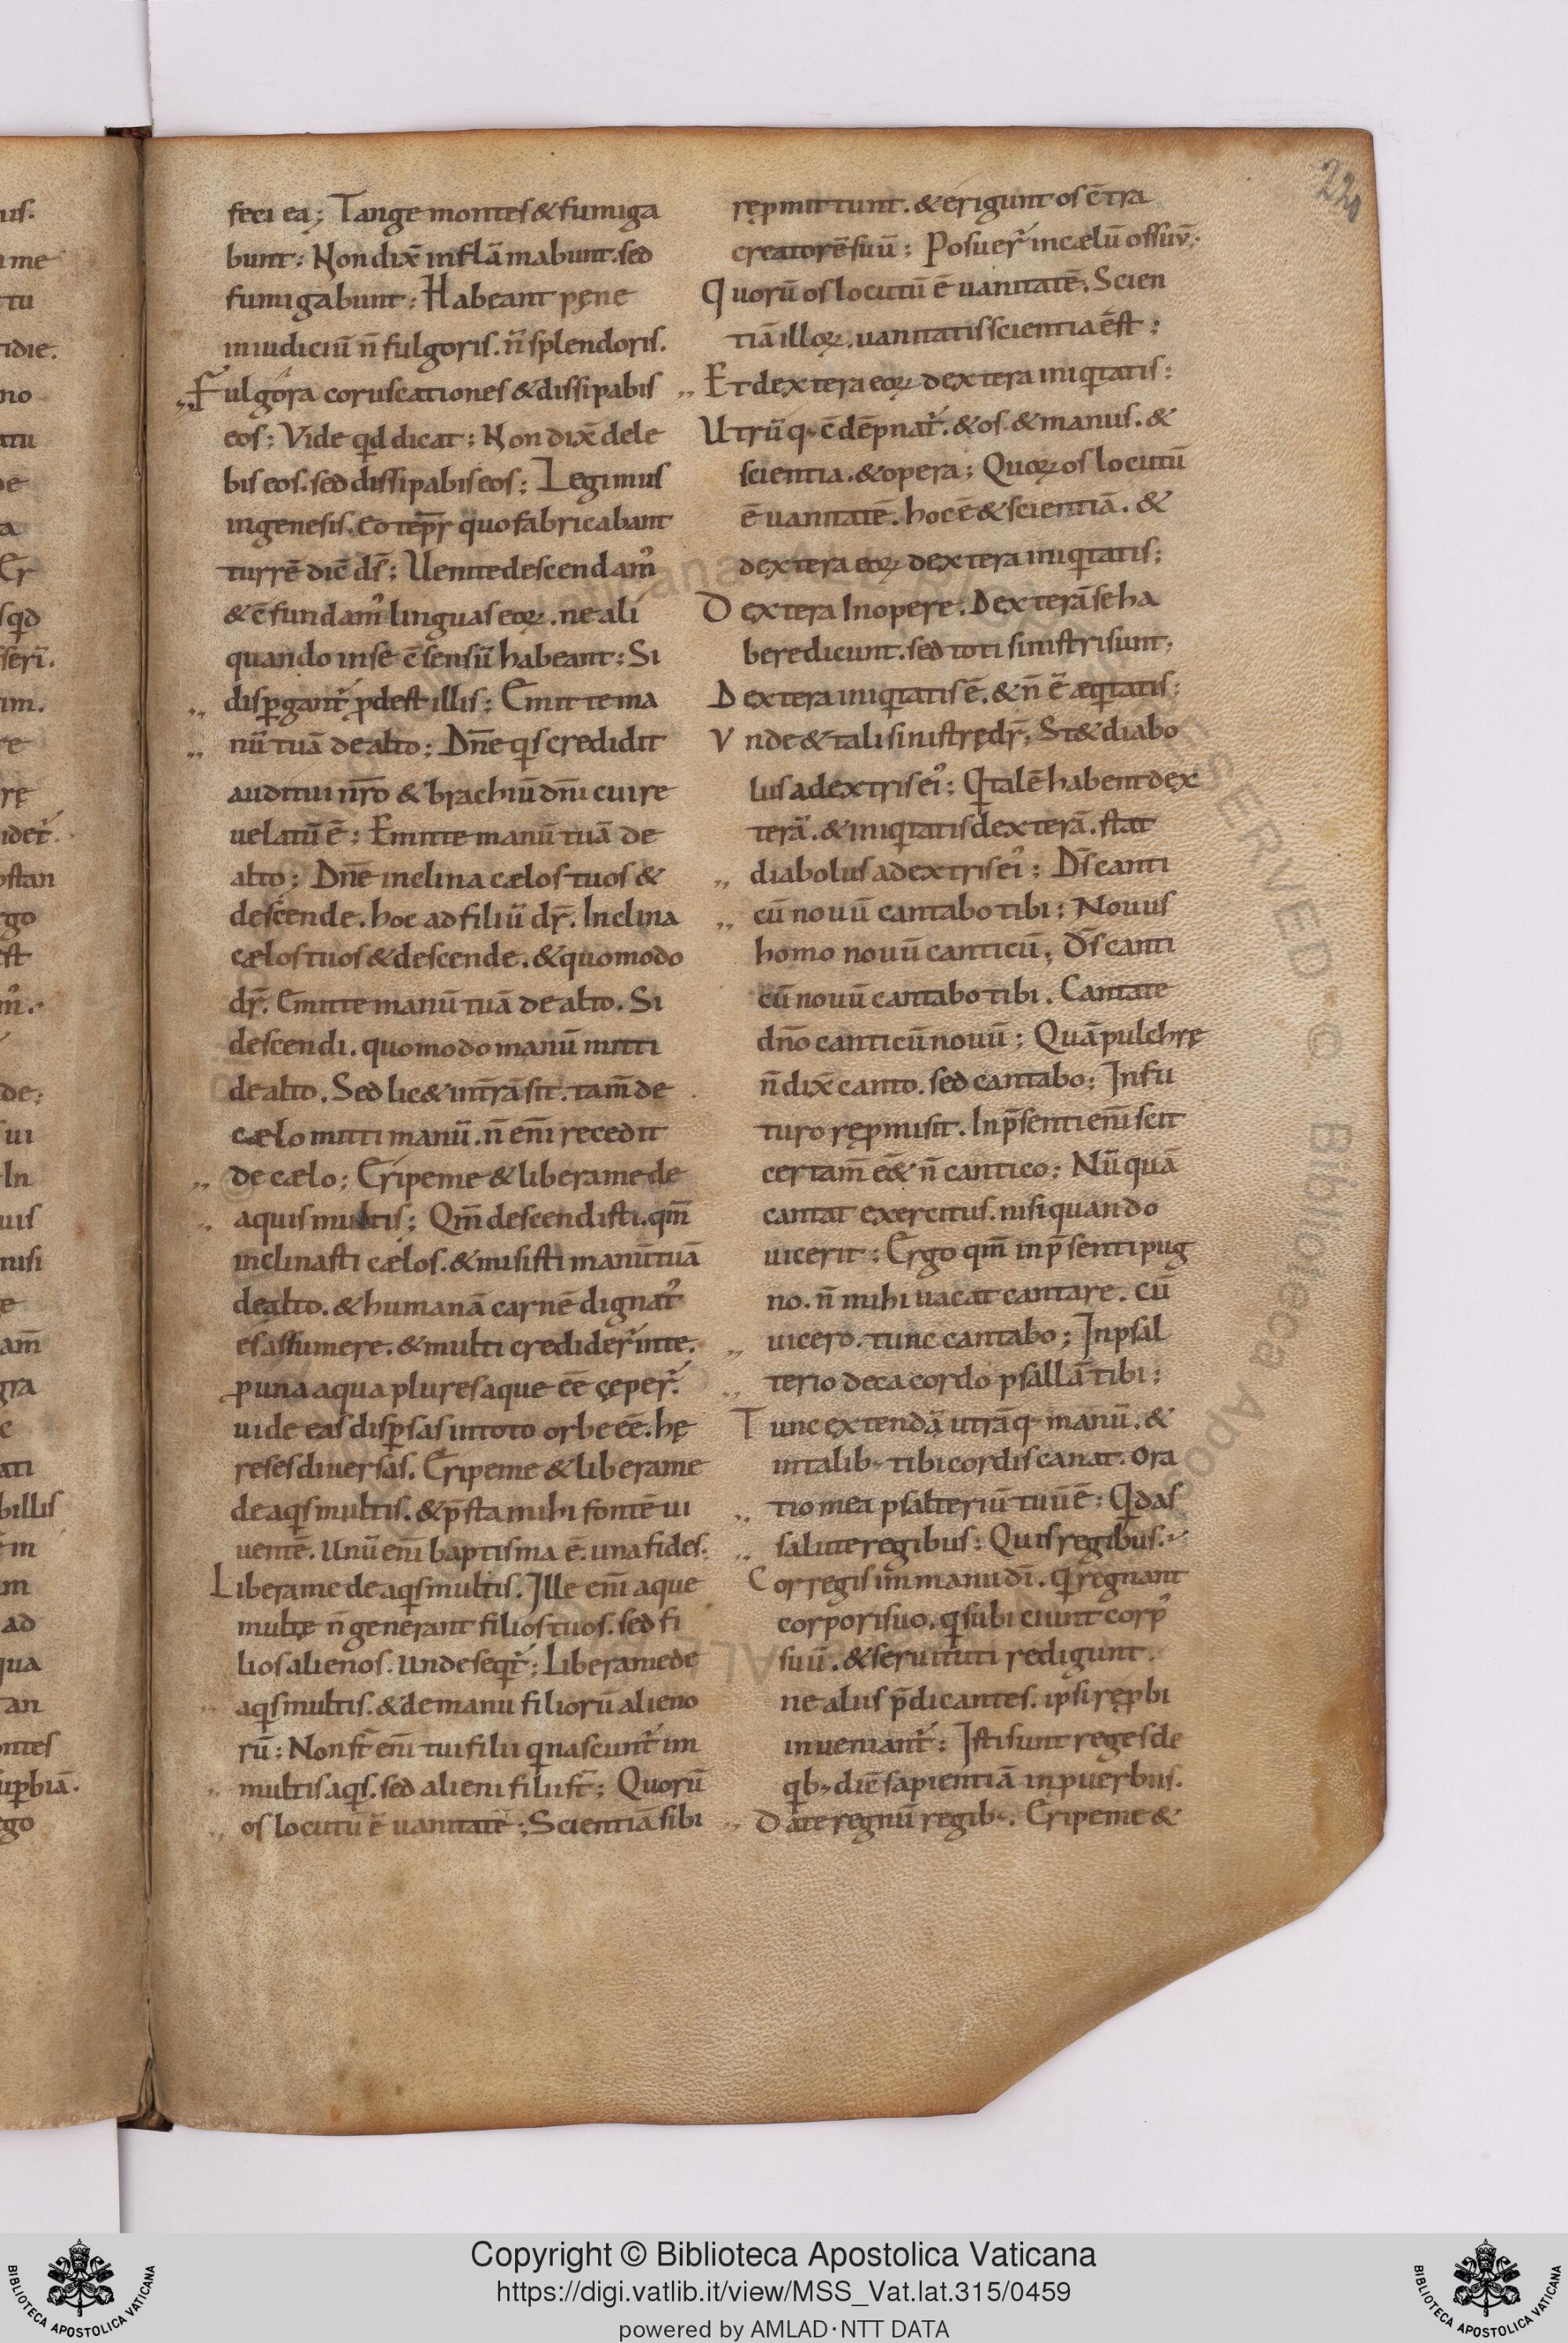 220
feci ea; Tange montes & fumiga
bunt; Non dix̄ inflāmabunt. sed
fumigabunt; Habeant pęne
in iudiciū n̄ fulgoris. n̄ splendoris.
Fulgora coruscationes & dissipabis
eos; Vide qd dicat; Non dix̄ dele
bis eos. sed dissipabis eos; Legimus
in genesis. eo tēpr quo fabricabant
turrē dic̄ ds̄; Uenite descendam᾽
& c̄fundam᾽ linguas eoꝝ. ne ali
quando inse c̄sensū habeant; Si
disꝑgant᾽ ꝓdest illis; Emitte ma
nū tuā de alto; Dn̄e qs credidit
auditui nr̄o & brachiū dn̄i cui re
uelatū ē; Emitte manū tuā de
alto; Dn̄e inclina cælos tuos &
descende. hoc ad filiū dr̄. Inclina
cælos tuos & descende. & quomodo
dr̄. Emitte manū tuā de alto. Si
descendi. quomodo manū mitti
de alto. Sed lic& intrā sit. tam̄ de
cælo mitti manū. n̄ eni᷆ recedit
de cælo; Eripe me & libera me de
aquis multis; Qm̄ descendisti. qm̄
inclinasti cælos. & misisti manū tuā
de alto. & humanā carnē dignat᾽
es assumere. & multi credider᷆ inte.
ꝓ una aqua plures aque ēē çeper᷆.
uide eas disꝑsas intoto orbe ēē. hę
reses diuersas. Eripe me & libera me
de aqs multis. & p̄sta mihi fontē ui
uentē. Unū eni᷆ baptisma ē. una fides.
Libera me de aqs multis. Ille eni᷆ aque
multę n̄ generant filios tuos. sed fi
lios alienos. Unde seqt᾽; Libera me de
aqs multis. & de manu filiorū alieno
rū; Non st̄ eni᷆ tui filii qi nascunt᾽ im
multis aqs. sed alieni filii st̄; Quorū
os locutū ē uanitatē; Scientiā sibi
rępmittunt. & erigunt os c̄tra
creatorē suū; Posuer᷆ in cælū os suū.
Quorū os locutū ē uanitatē. Scien
tiā illoꝝ. uanitatis scientia ēst;
Et dextera eoꝝ dextera iniqtatis;
Utrūq; c̄dēpnat᾽. & os & manus. &
scientia. & opera; Quoꝝ os locutū
ē uanitatē. hoc ē & scientiā. &
dextera eoꝝ dextera iniqtatis;
Dextera In opere. Dexterā se ha
bere dicunt. sed toti sinistri sunt;
Dextera iniqtatis ē. & n̄ ē æqtatis;
Vnde & tali sinistrę dr̄. St& diabo
lus a dextris ei᾽; Qi talē habent dex
terā. & iniqtatis dexterā. stat
diabolus a dextris ei᾽; Ds̄ canti
cū nouū cantabo tibi; Nouus
homo nouū canticū; Ds̄ canti
cū nouū cantabo tibi. Cantate
dn̄o canticū nouū; Quā pulchrę
n̄ dix̄ canto. sed cantabo; In fu
turo rępmisit. In p̄senti eni᷆ scit
certam̄ ē& n̄ cantico; Nū quā
cantat exercitus. nisi quando
uicerit; Ergo qm̄ in p̄senti pug
no. n̄ mihi uacat cantare. Cū
uicero. tunc cantabo; In psal
terio decacordo psallā tibi;
Tunc extendā utrāq; manū. &
in talib; tibi cordis canat. Ora
tio mea psalteriū tuū ē; Qi das
salute regibus; Quis regibus.
Cor regis im manu di᷆. Qi regnant
corpori suo. qi subiciunt corp᾽
suū. & seruituti redigunt.
ne aliis p̄dicantes. ipsi ręꝓbi
inueniant᾽; Isti sunt reges de
qb; dic̄ sapientiā in puerbus.
Date regnū regib;. Eripe me &
Copyright © Biblioteca Apostolica Vaticana
https://digi.vatlib.it/view/MSS_Vat.lat.315/0459
powered by AMLAD·NTT DATA
BIBLIOTECA APOSTOLICA VATICANA
BIBLIOTECA APOSTOLICA VATICANA